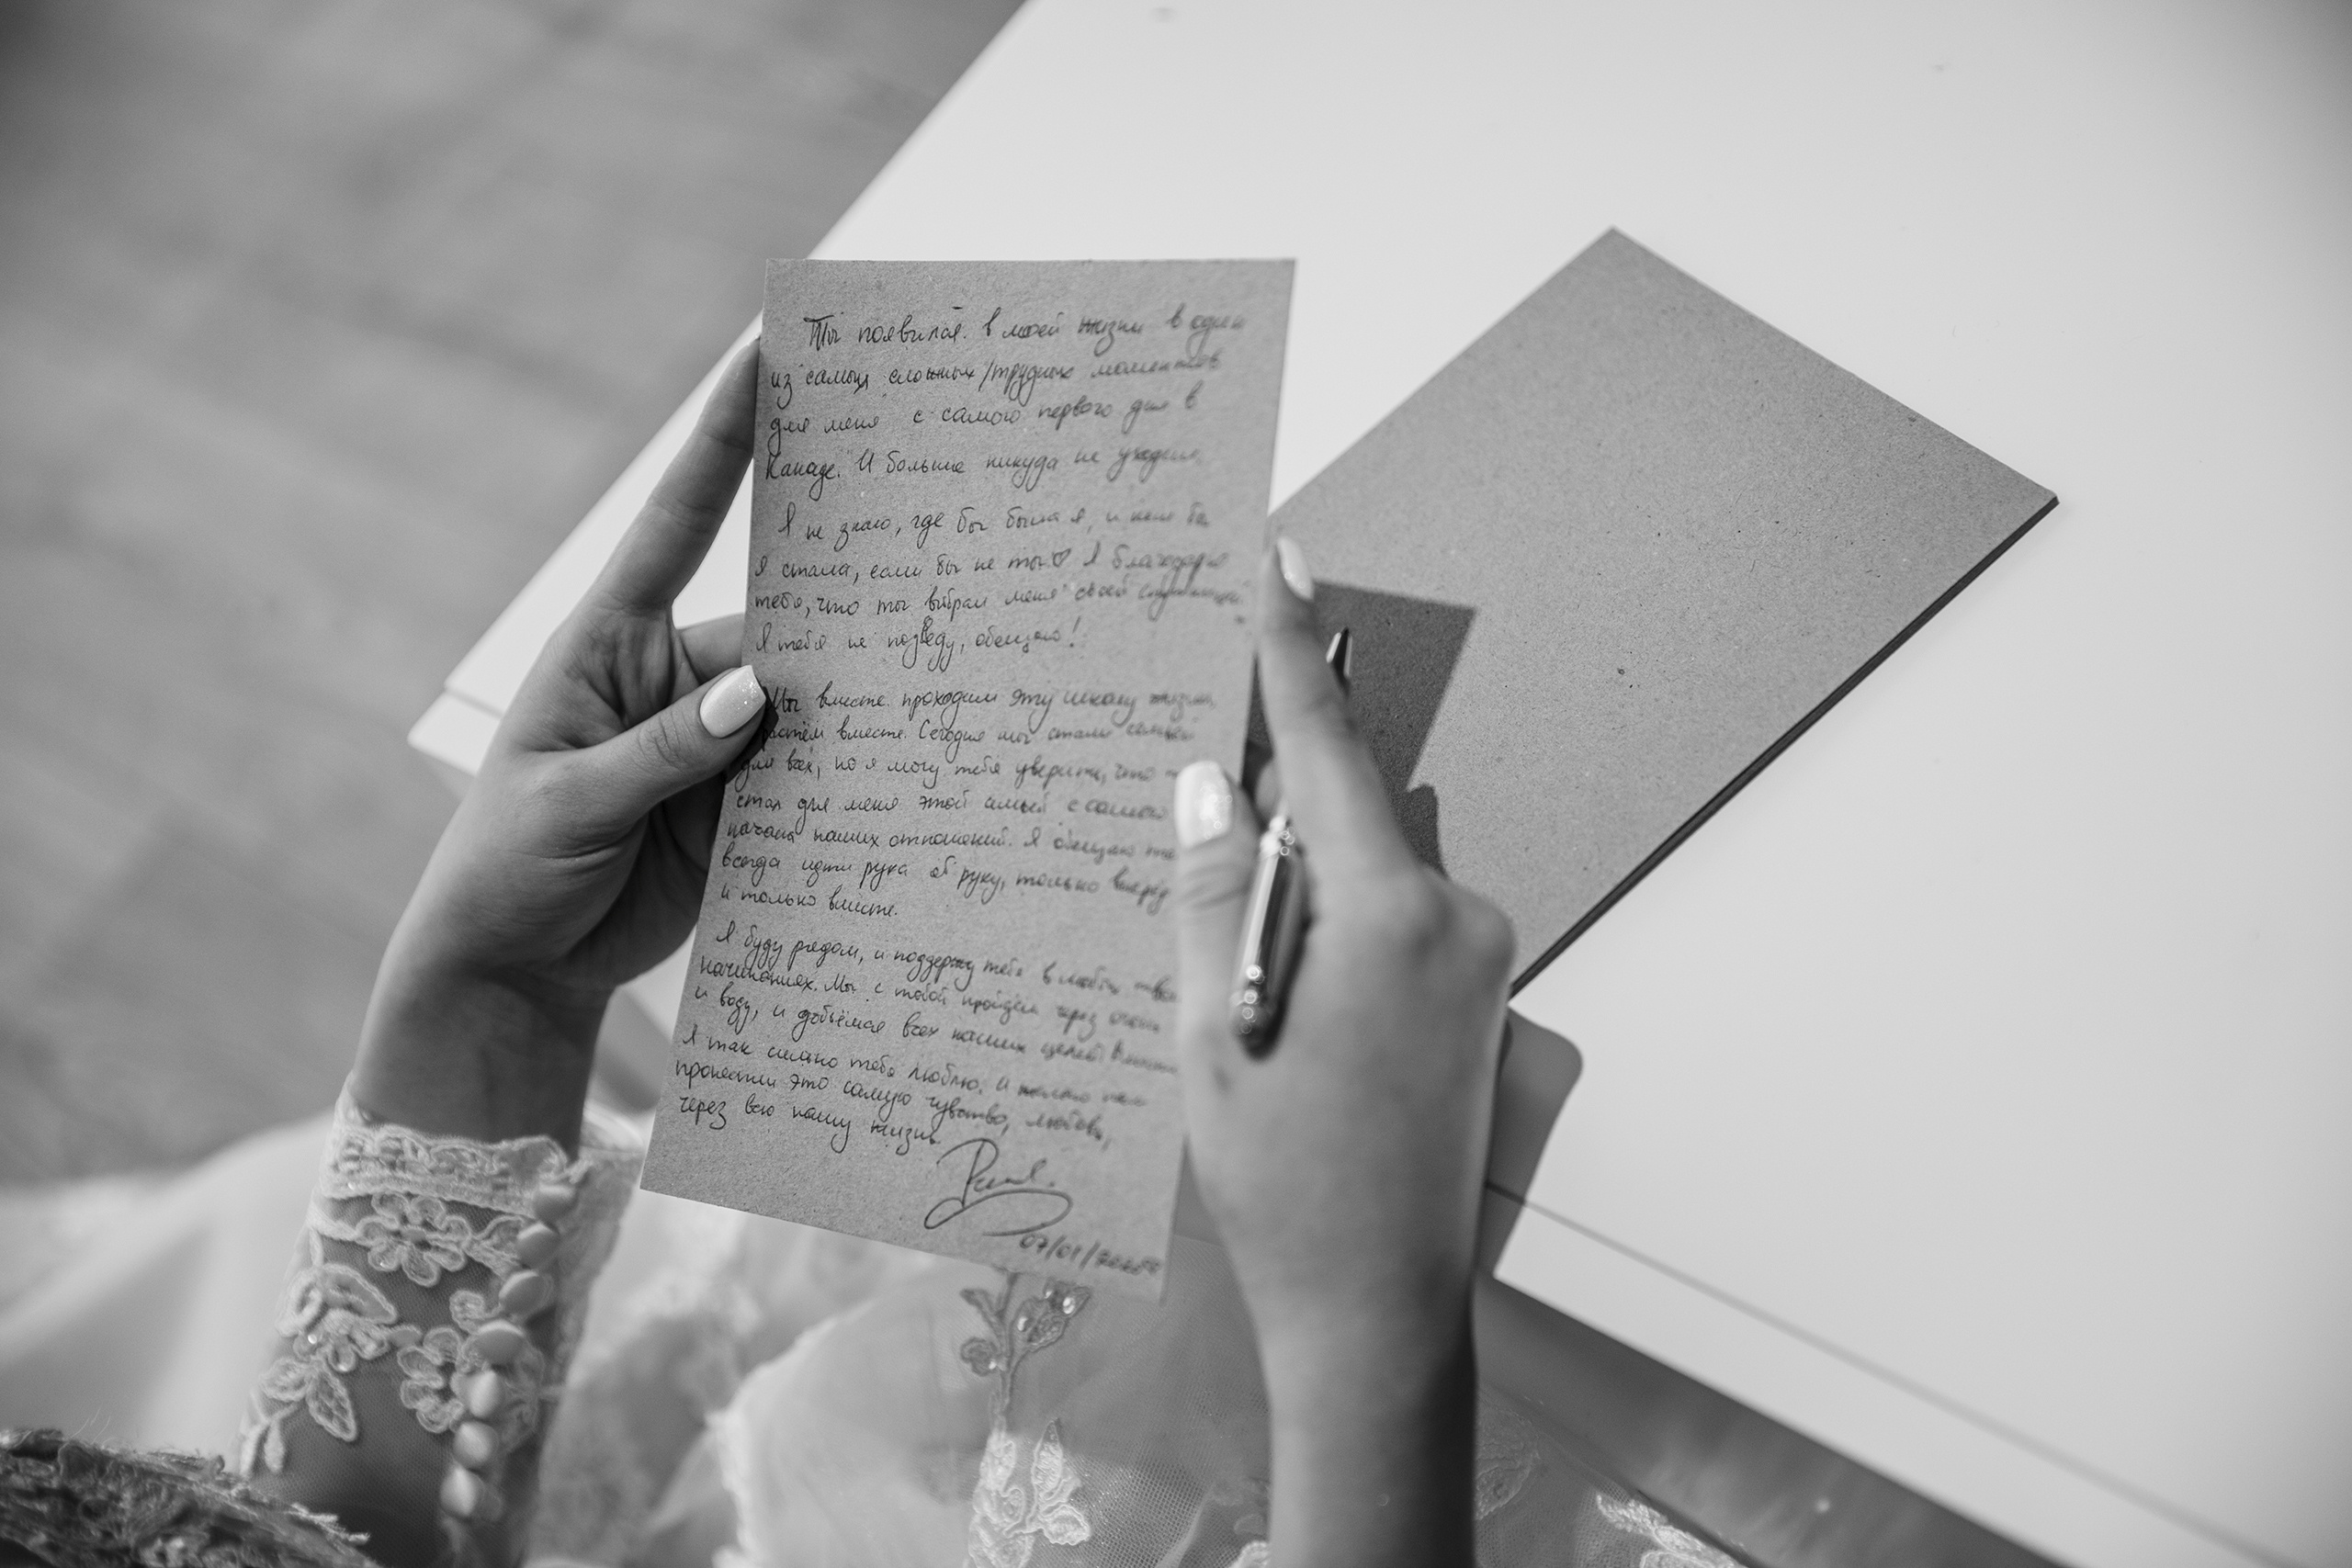 Ты появился в моей жизни в один
из самых сложных/трудных моментов
для меня с самого первого дня в
Канаде. И больше никуда не уходил.
Я не знаю, где бы была я, и кем бы
я стала, если бы не ты♡ Я благодарю
тебя, что ты выбрал меня своей спутницей.
Я тебя не подведу, обещаю!
Мы вместе проходим эту школу жизни,
растём вместе. Сегодня мы стали семьёй
для всех, но я могу тебя уверить, что
стал для меня этой семьёй с самого
начала наших отношений. Я обещаю
всегда идти рука об руку, только вперёд
и только вместе.
Я буду рядом, и поддержу тебя в любых
начинаниях. Мы с тобой пройдём через огонь
и воду, и добьёмся всех наших целей!
Я так сильно тебя люблю. И
пронести это самую чувство, любовь,
через всю нашу жизнь.
07/01/